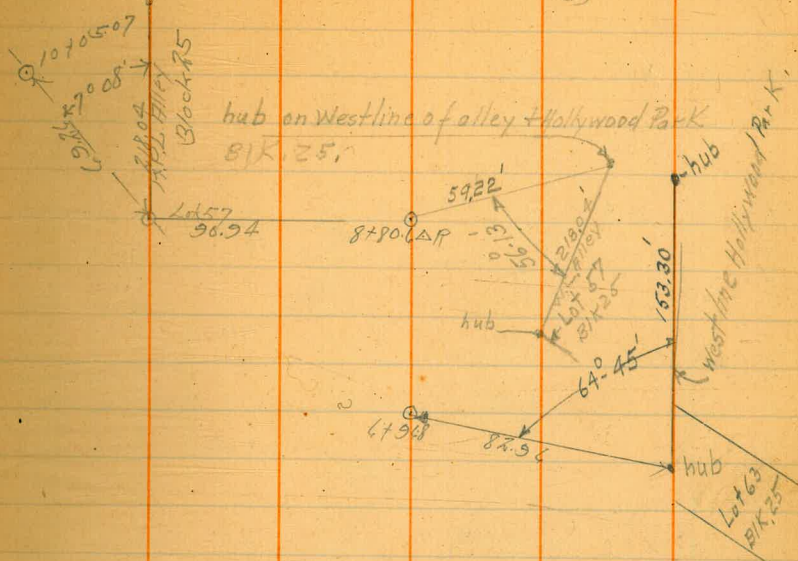 10+05.07
7° 08'
218.04
Alley
Block 25
hub on Westline of alley + Hollywood Park
Blk. 25.
hub
59.22'
Lot 57
90.94
8+80.6 ΔP
56-13
218.04'
Alley
Lot 57
Blk 25
hub
153.30'
West line Hollywood Park.
64°-45'
6+96.8
82.96
hub
Lot 63
Blk. 25